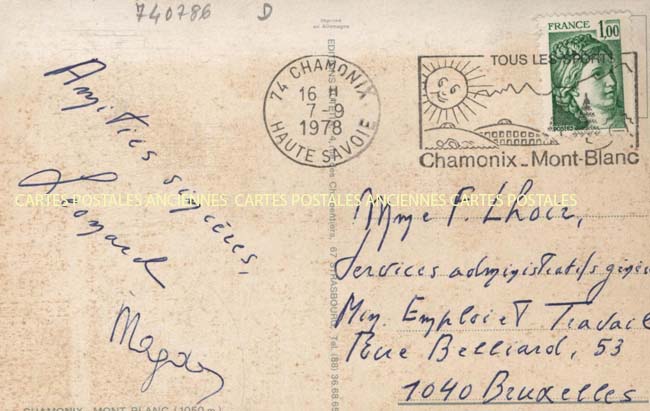 740786 D
Imprimé
en Allemagne
FRANCE
1,00
TOUS LES SPORTS
74 CHAMONIX
16 H
7-9
1978
HAUTE SAVOIE
Chamonix_Mont-Blanc
Amitiés sincères,
Léonard
CARTES POSTALES ANCIENNES CARTES POSTALES ANCIENNES CARTES POSTALES ANCIENNES
67 STRASBOURG, Tel. (88) 36.68.65
Mme F. Lhoir,
Services administratifs géné
Min. Emploi et Travail
Rue Belliard, 53
1040 Bruxelles
CHAMONIX - MONT-BLANC (1050 m)